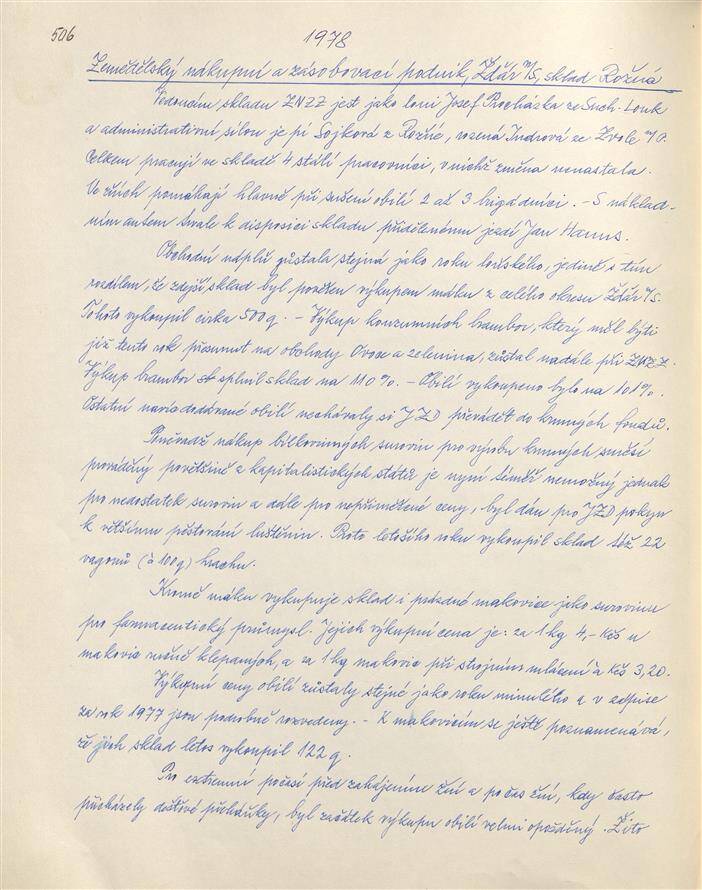 506
1978
Zemědělský nákupní a zásobovací podnik, Žďár n/S, sklad Rožná
Vedoucím skladu ZNZZ jest jako loni Josef Procházka ze Such. Louk
a administrativní silou je pí Sojková z Rožné, rozená Indrová ze Zvole n/P.
Celkem pracují ve skladě 4 stálí pracovníci, v nichž změna nenastala.
Ve žních pomáhají hlavně při sušení obilí 2 až 3 brigádníci. – S náklad-
ním autem trvale k disposici skladu přiděleném jezdí Jan Hanus.
Obchodní náplň zůstala stejná jako roku loňského, jedině s tím
rozdílem, že zdejší sklad byl pověřen výkupem máku z celého okresu Žďár n/S.
Tohoto vykoupil cirka 500 q. – Výkup konzumních brambor, který měl býti
již tento rok přesunut na obchody Ovoce a zelenina, zůstal nadále při ZNZZ.
Výkup brambor splnil sklad na 110%. – Obilí vykoupeno bylo na 101%.
Ostatní naviadodávané obilí nechávaly si JZD převádět do krmných fondů.
Poněvadž nákup bílkovinných surovin pro výrobu krmných směsí
prováděný povětšině z kapitalistických států je nyní téměř nemožný jednak
pro nedostatek surovin a dále pro nepřiměřené ceny, byl dán pro JZD pokyn
k většímu pěstování luštěnin. Proto letošního roku vykoupil sklad též 22
vagonů (à 100 q) hrachu.
Kromě máku vykupuje sklad i prázdné makovice jako surovinu
pro farmaceutický průmysl. Jejich výkupní cena je: za 1 kg 4,– Kčs u
makovic ručně klepaných, a za 1 kg makovic při strojním mlácení à Kčs 3,20.
Výkupní ceny obilí zůstaly stejné jako roku minulého a v zápise
za rok 1977 jsou podrobně rozvedeny. – K makovicím se ještě poznamenává,
že jich sklad letos vykoupil 122 q.
Po extremní počasí před zahájením žní a počas žní, kdy často
přicházely dešťové přeháňky, byl začátek výkupu obilí velmi opožděný. Žito